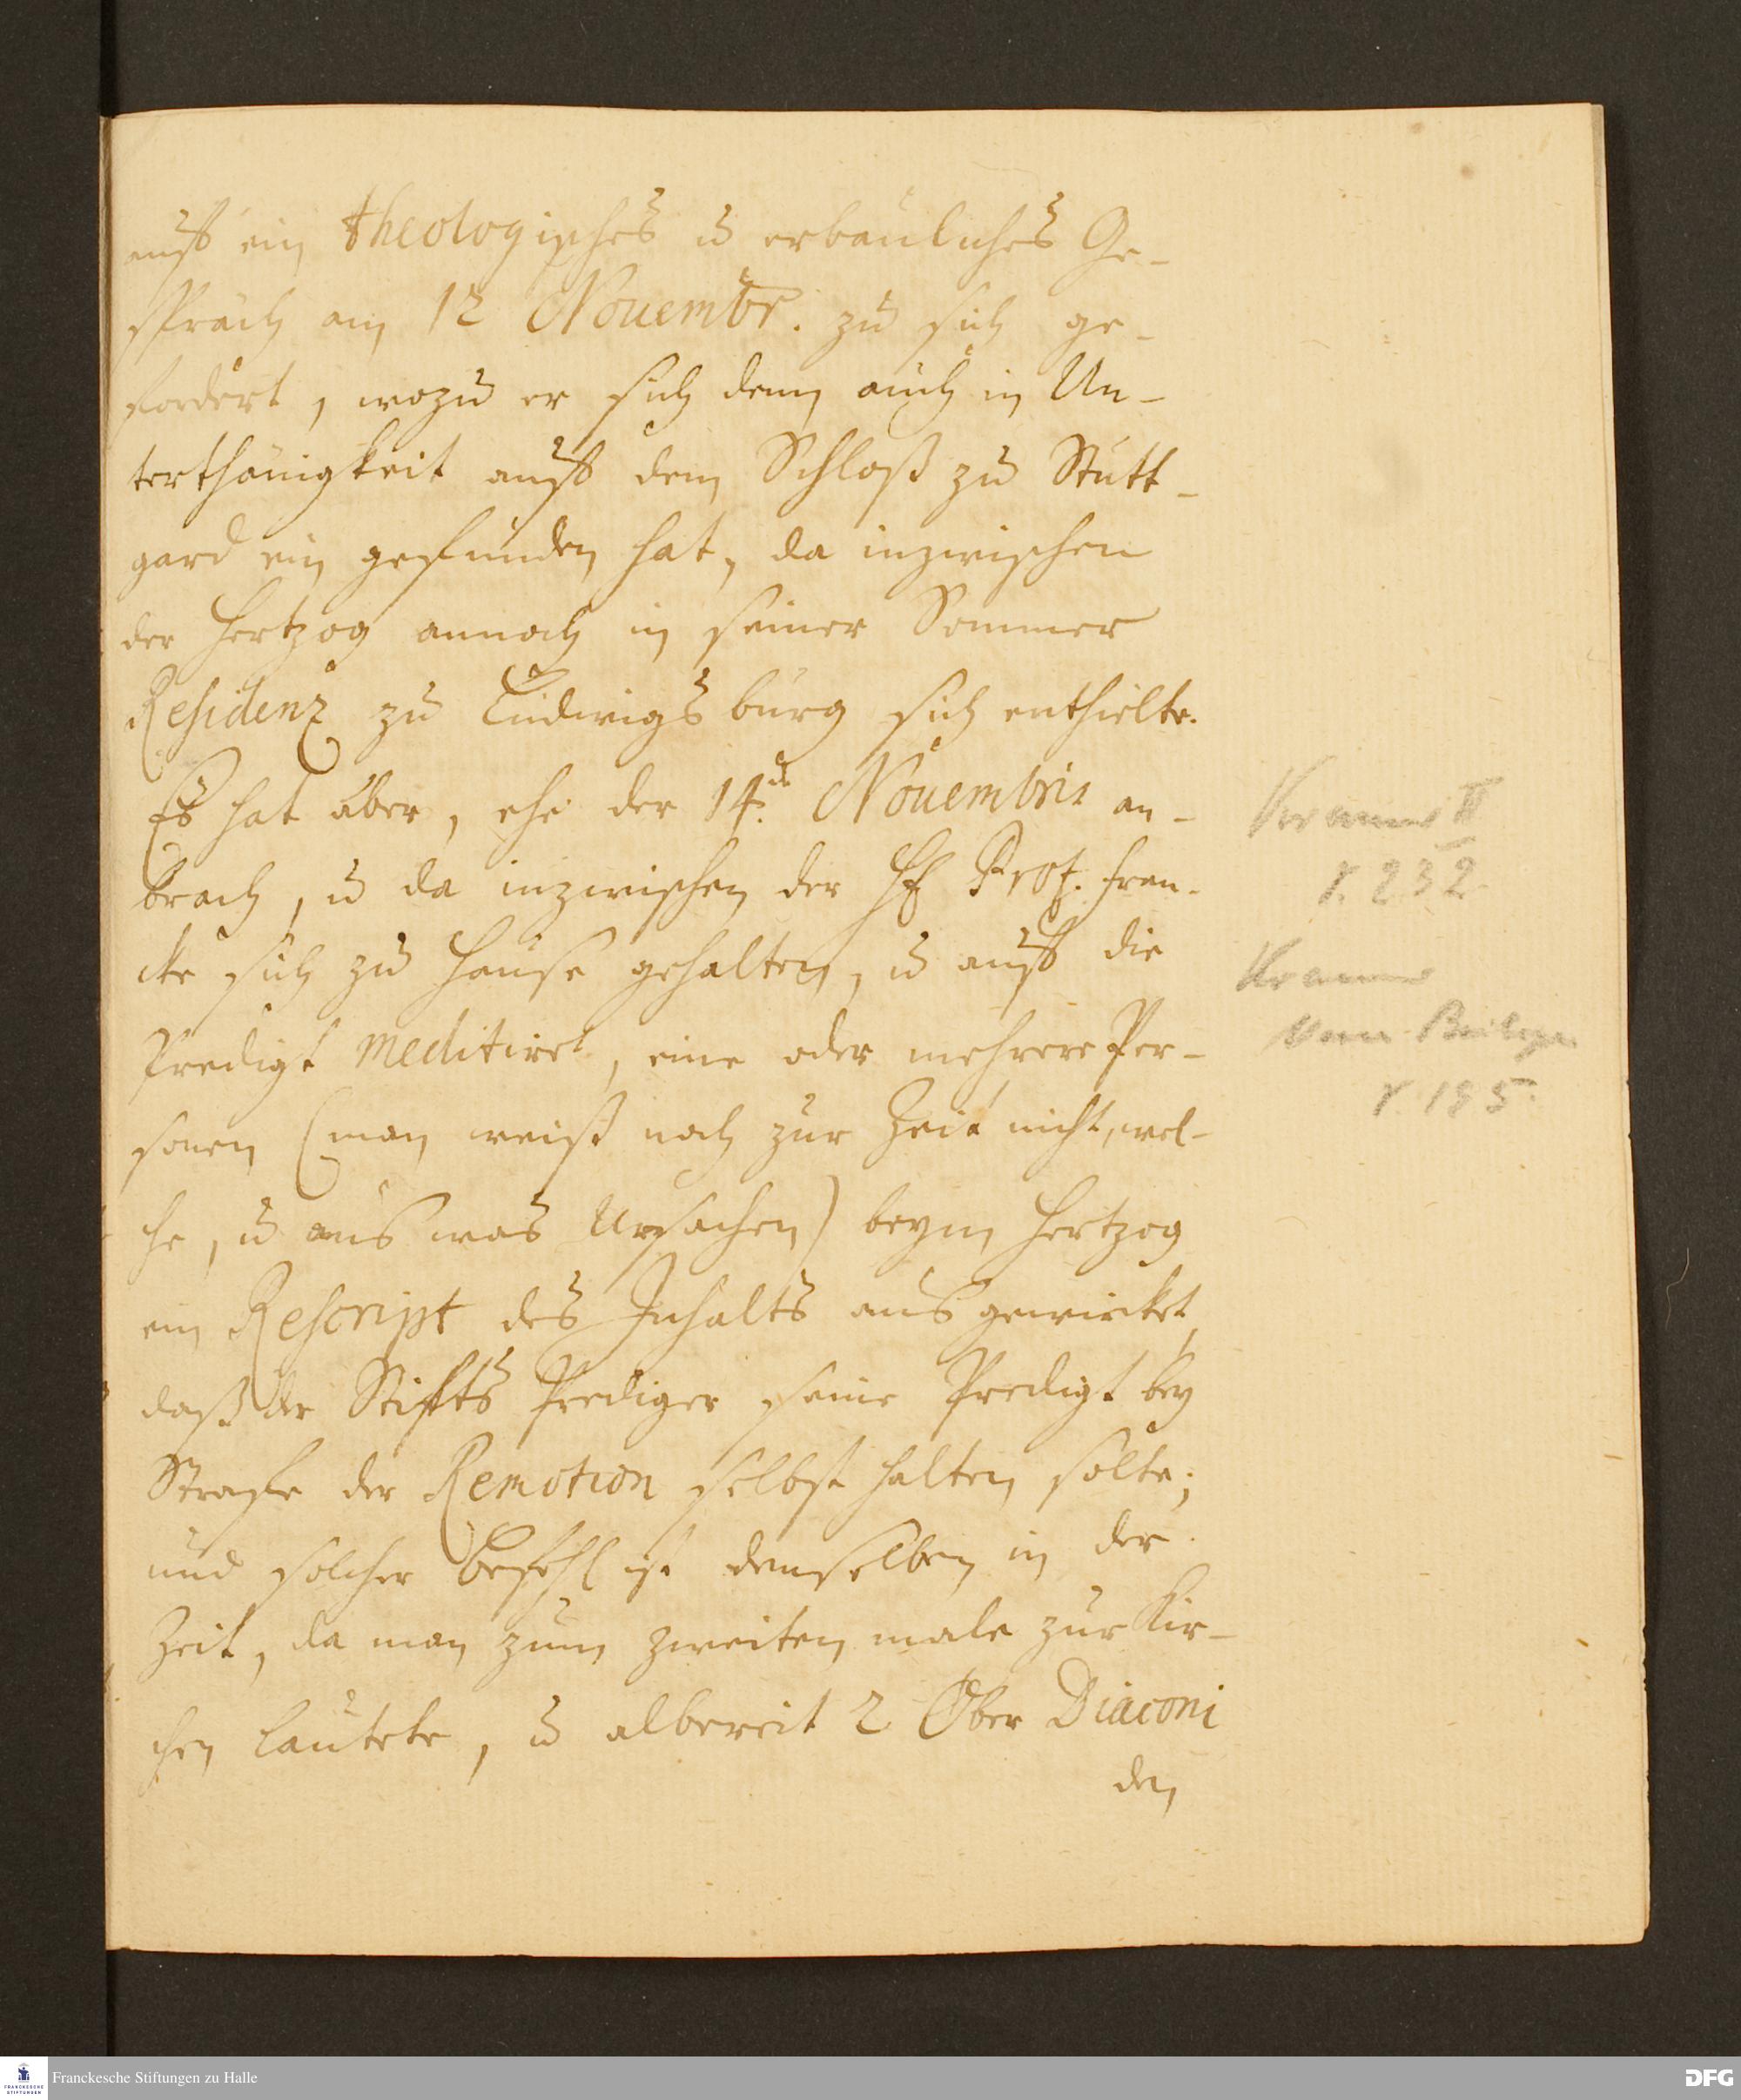 auff ein theologisches u erbauliches Ge-
spräch am 12 Nouembr. zu sich ge-
fordert, wozu er sich denn auch in Un-
terthänigkeit auff dem Schloß zu Stutt-
gard ein gefunden hat, da inzwischen
der Hertzog annoch in seiner Sommer
Residenz zu Ludwigsburg sich enthielte.
Es hat aber, ehe der 14.te Nouembris an-
brach, u da inzwischen der H Prof. Fran-
cke sich zu Hause gehalten, u auff die
Predigt meditiret, eine oder mehrere Per-
sonen (man weiß noch zur Zeit nicht, wel-
che, u aus was Ursachen) beym Hertzog
ein Rescript des Inhalts aus gewircket,
daß der Stiffts Prediger seine Predigt bey
Straffe der Remotion selbst halten solte;
und solcher Befehl ist demselben in der
Zeit, da man zum zweiten male zur Kir-
chen lautete, u albereit 2 Ober Diaconi
den
Kramer II
S. 232
Kramer
Beiträge
S. 195.
Franckesche Stiftungen zu Halle
FRANCKESCHE
STIFTUNGEN
DFG